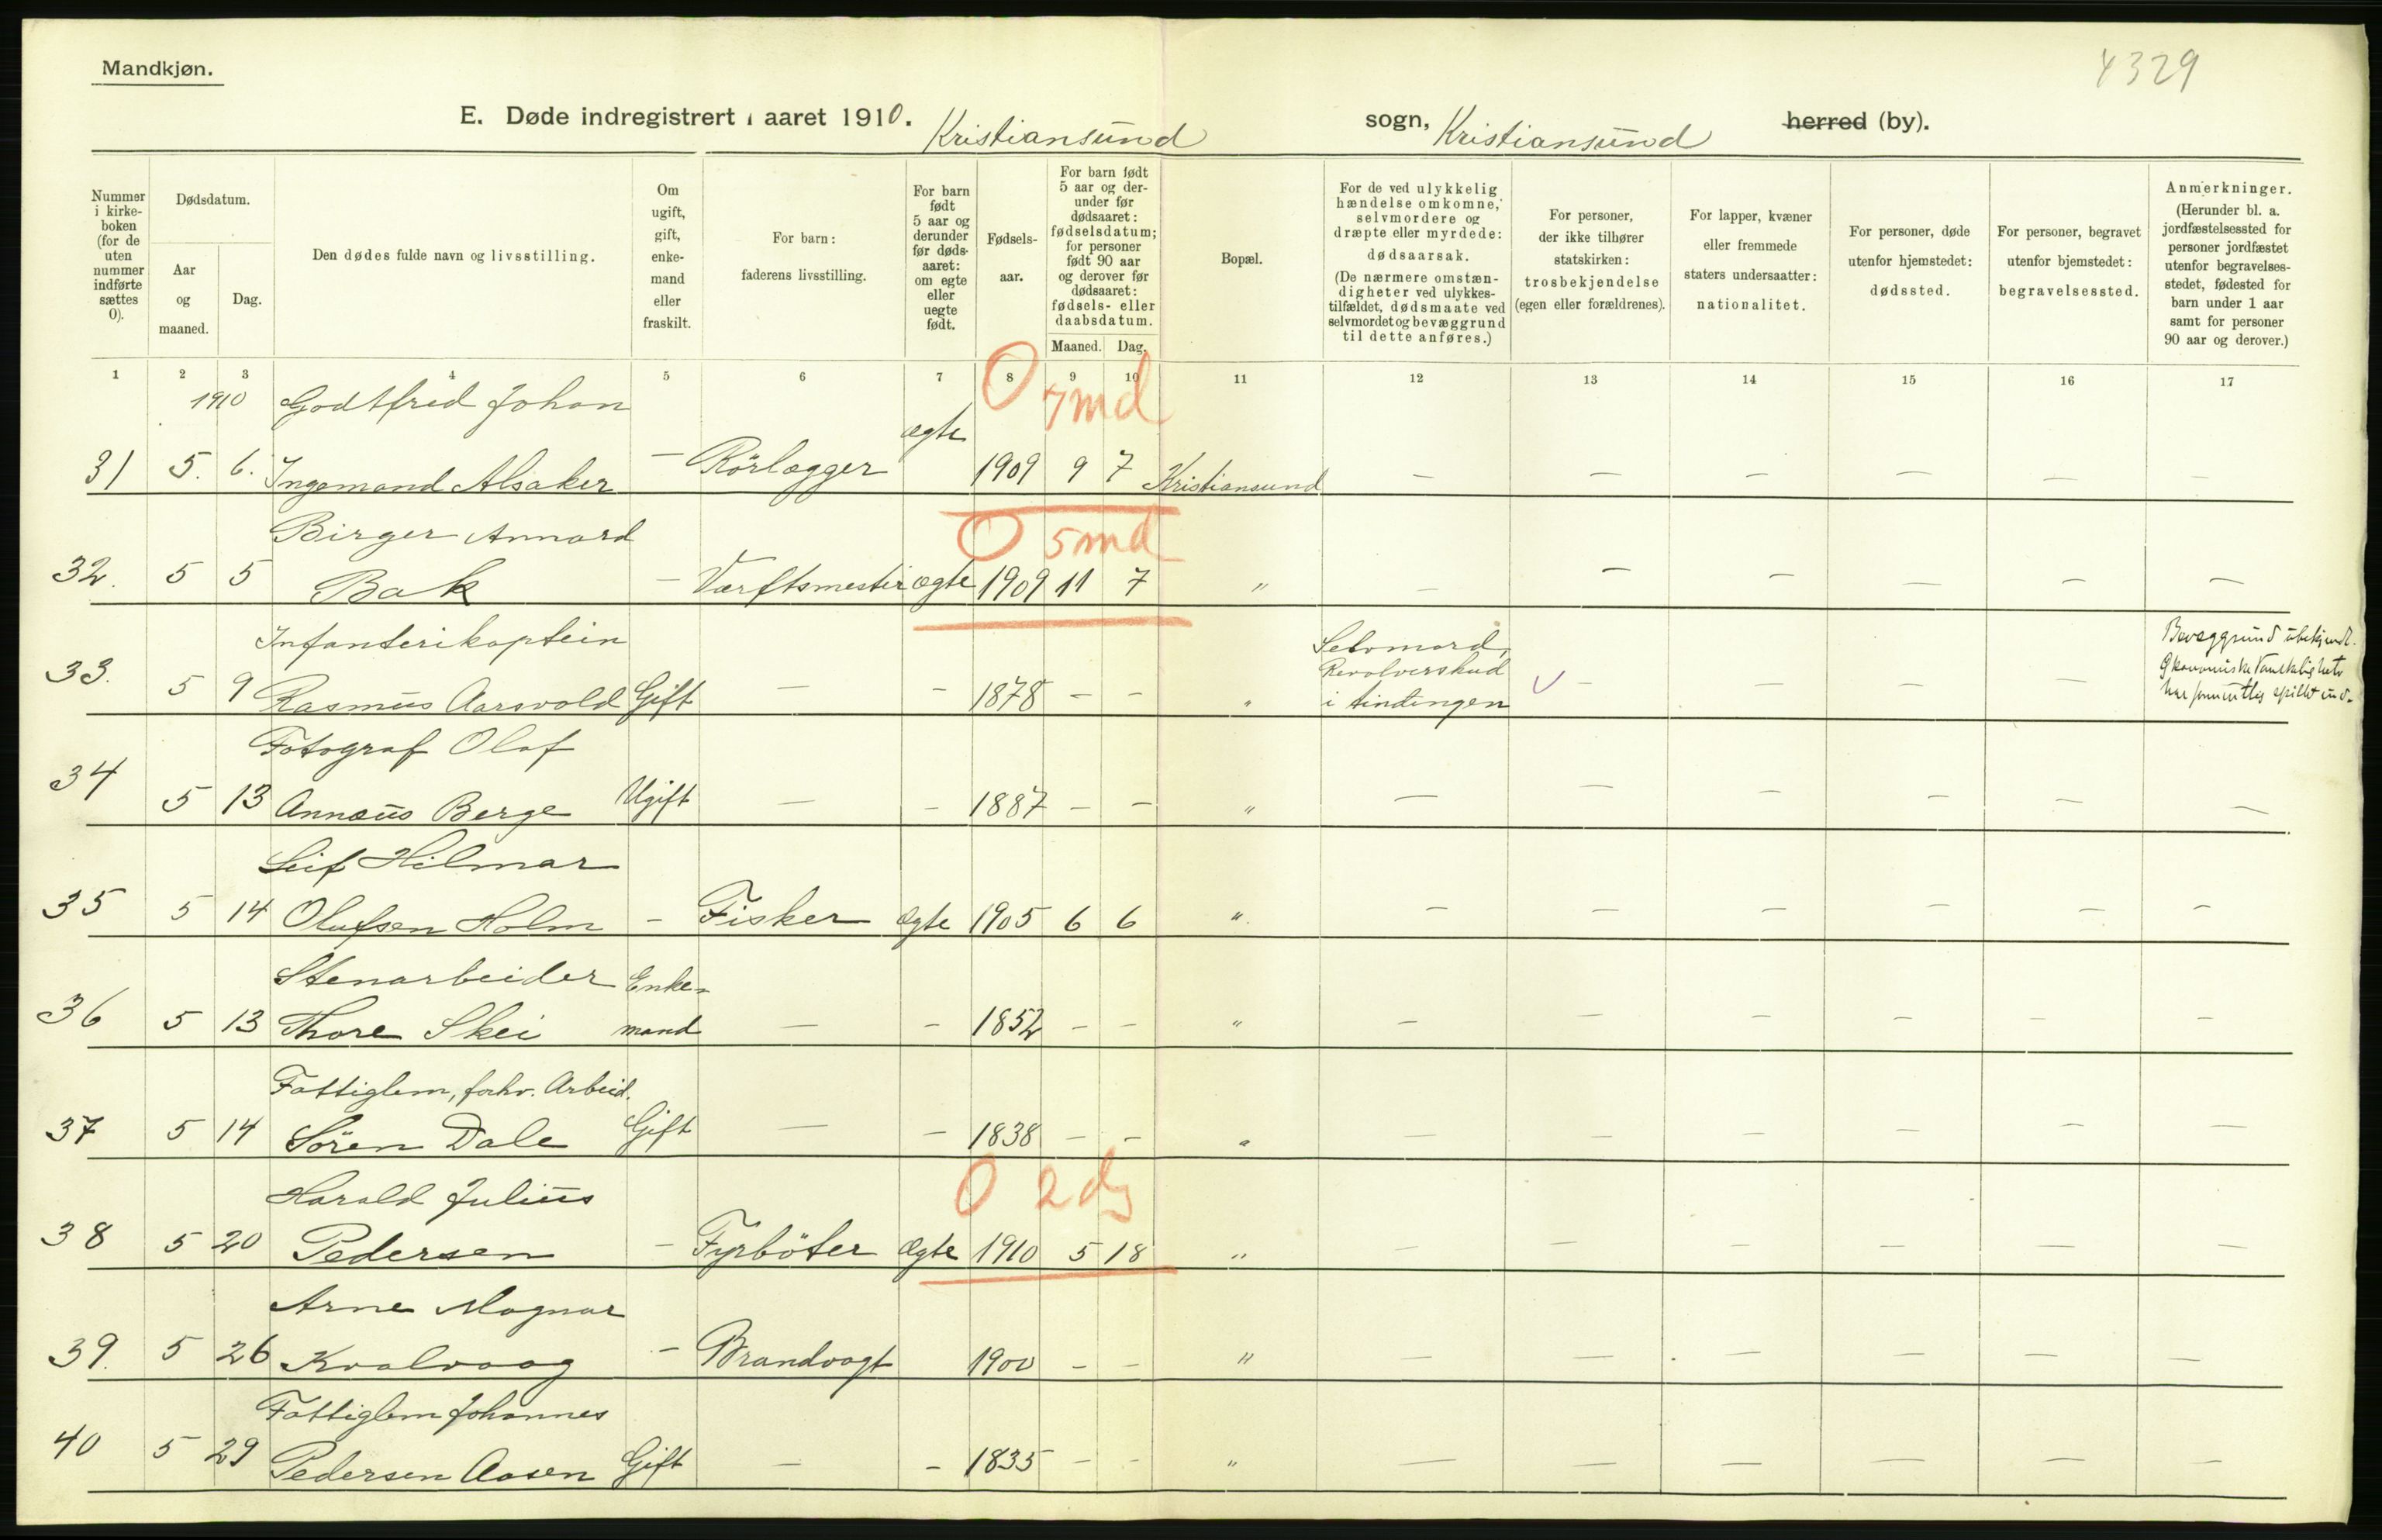 Mandkjøn.
4329
E. Døde indregistrert i aaret 1910. Kristiansund sogn, Kristiansund herred (by).
Nummer i kirke-boken (for de uten nummer indførte sættes 0).
Dødsdatum.
Aar og maaned.
Dag.
Den dødes fulde navn og livsstilling.
Om ugift, gift, enke-mand eller fraskilt.
For barn: faderens livsstilling.
For barn født 5 aar og derunder før døds-aaret: om egte eller uegte født.
Fødsels-aar.
For barn født 5 aar og der-under før dødsaaret: fødselsdatum; for personer født 90 aar og derover før dødsaaret: fødsels- eller daabsdatum.
Maaned. Dag.
Bopæl.
For de ved ulykkelig hændelse omkomne, selvmordere og dræpte eller myrdede: dødsaarsak. (De nærmere omstæn-digheter ved ulykkes-tilfældet, dødsmaate ved selvmordet og bevæggrund til dette anføres.)
For personer, der ikke tilhører statskirken: trosbekjendelse (egen eller forældrenes).
For lapper, kvæner eller fremmede staters undersaatter: nationalitet.
For personer, døde utenfor hjemstedet: dødssted.
For personer, begravet utenfor bjemstedet: begravelsessted.
Anmerkninger. (Herunder bl. a. jordfæstelsessted for personer jordfæstet utenfor begravelses-stedet, fødested for barn under 1 aar samt for personer 90 aar og derover.)
1 2 3 4 5 6 7 8 9 10 11 12 13 14 15 16 17
1910 Godtfred Johan 0 7 md
31 5. 6. Ingemand Alsaker — Rörlægger ægte 1909 9 7 Kristiansund — — — — — —
Birger Annard 0 5 md
32. 5 5 Bak — Værftsmester ægte 1909 11 7 " — — — — — —
Infanterikaptein Selvmord, Bevæggrund ubekjendt.
Revolverskud Økonomiske Vanskeligheter
33. 5 9 Rasmus Aarsvold Gift — — 1878 — — " i tindingen — — — — har formentlig spillet ind.
Fotograf Olaf
34 5 13 Annæus Berge Ugift — — 1887 — — " — — — — — —
Leif Hilmar
35 5 14 Olufsen Holm — Fisker Ægte 1905 6 6 " — — — — — —
Stenarbeider Enke-
36 5 13 Thore Skei mand — — 1852 — — " — — — — — —
Fattiglem, forhv. Arbeid.
37 5 14 Sören Dale Gift — — 1838 — — " — — — — — —
Harald Julius 0 2 dg
38 5 20 Pedersen — Fyrböter Ægte 1910 5 18 " — — — — — —
Arne Magnar
39. 5 26 Kvalvaag — Brandvagt 1900 — — " — — — — — —
Fattiglem Johannes
40 5 29 Pedersen Aasen Gift — — 1835 — — " — — — — — —